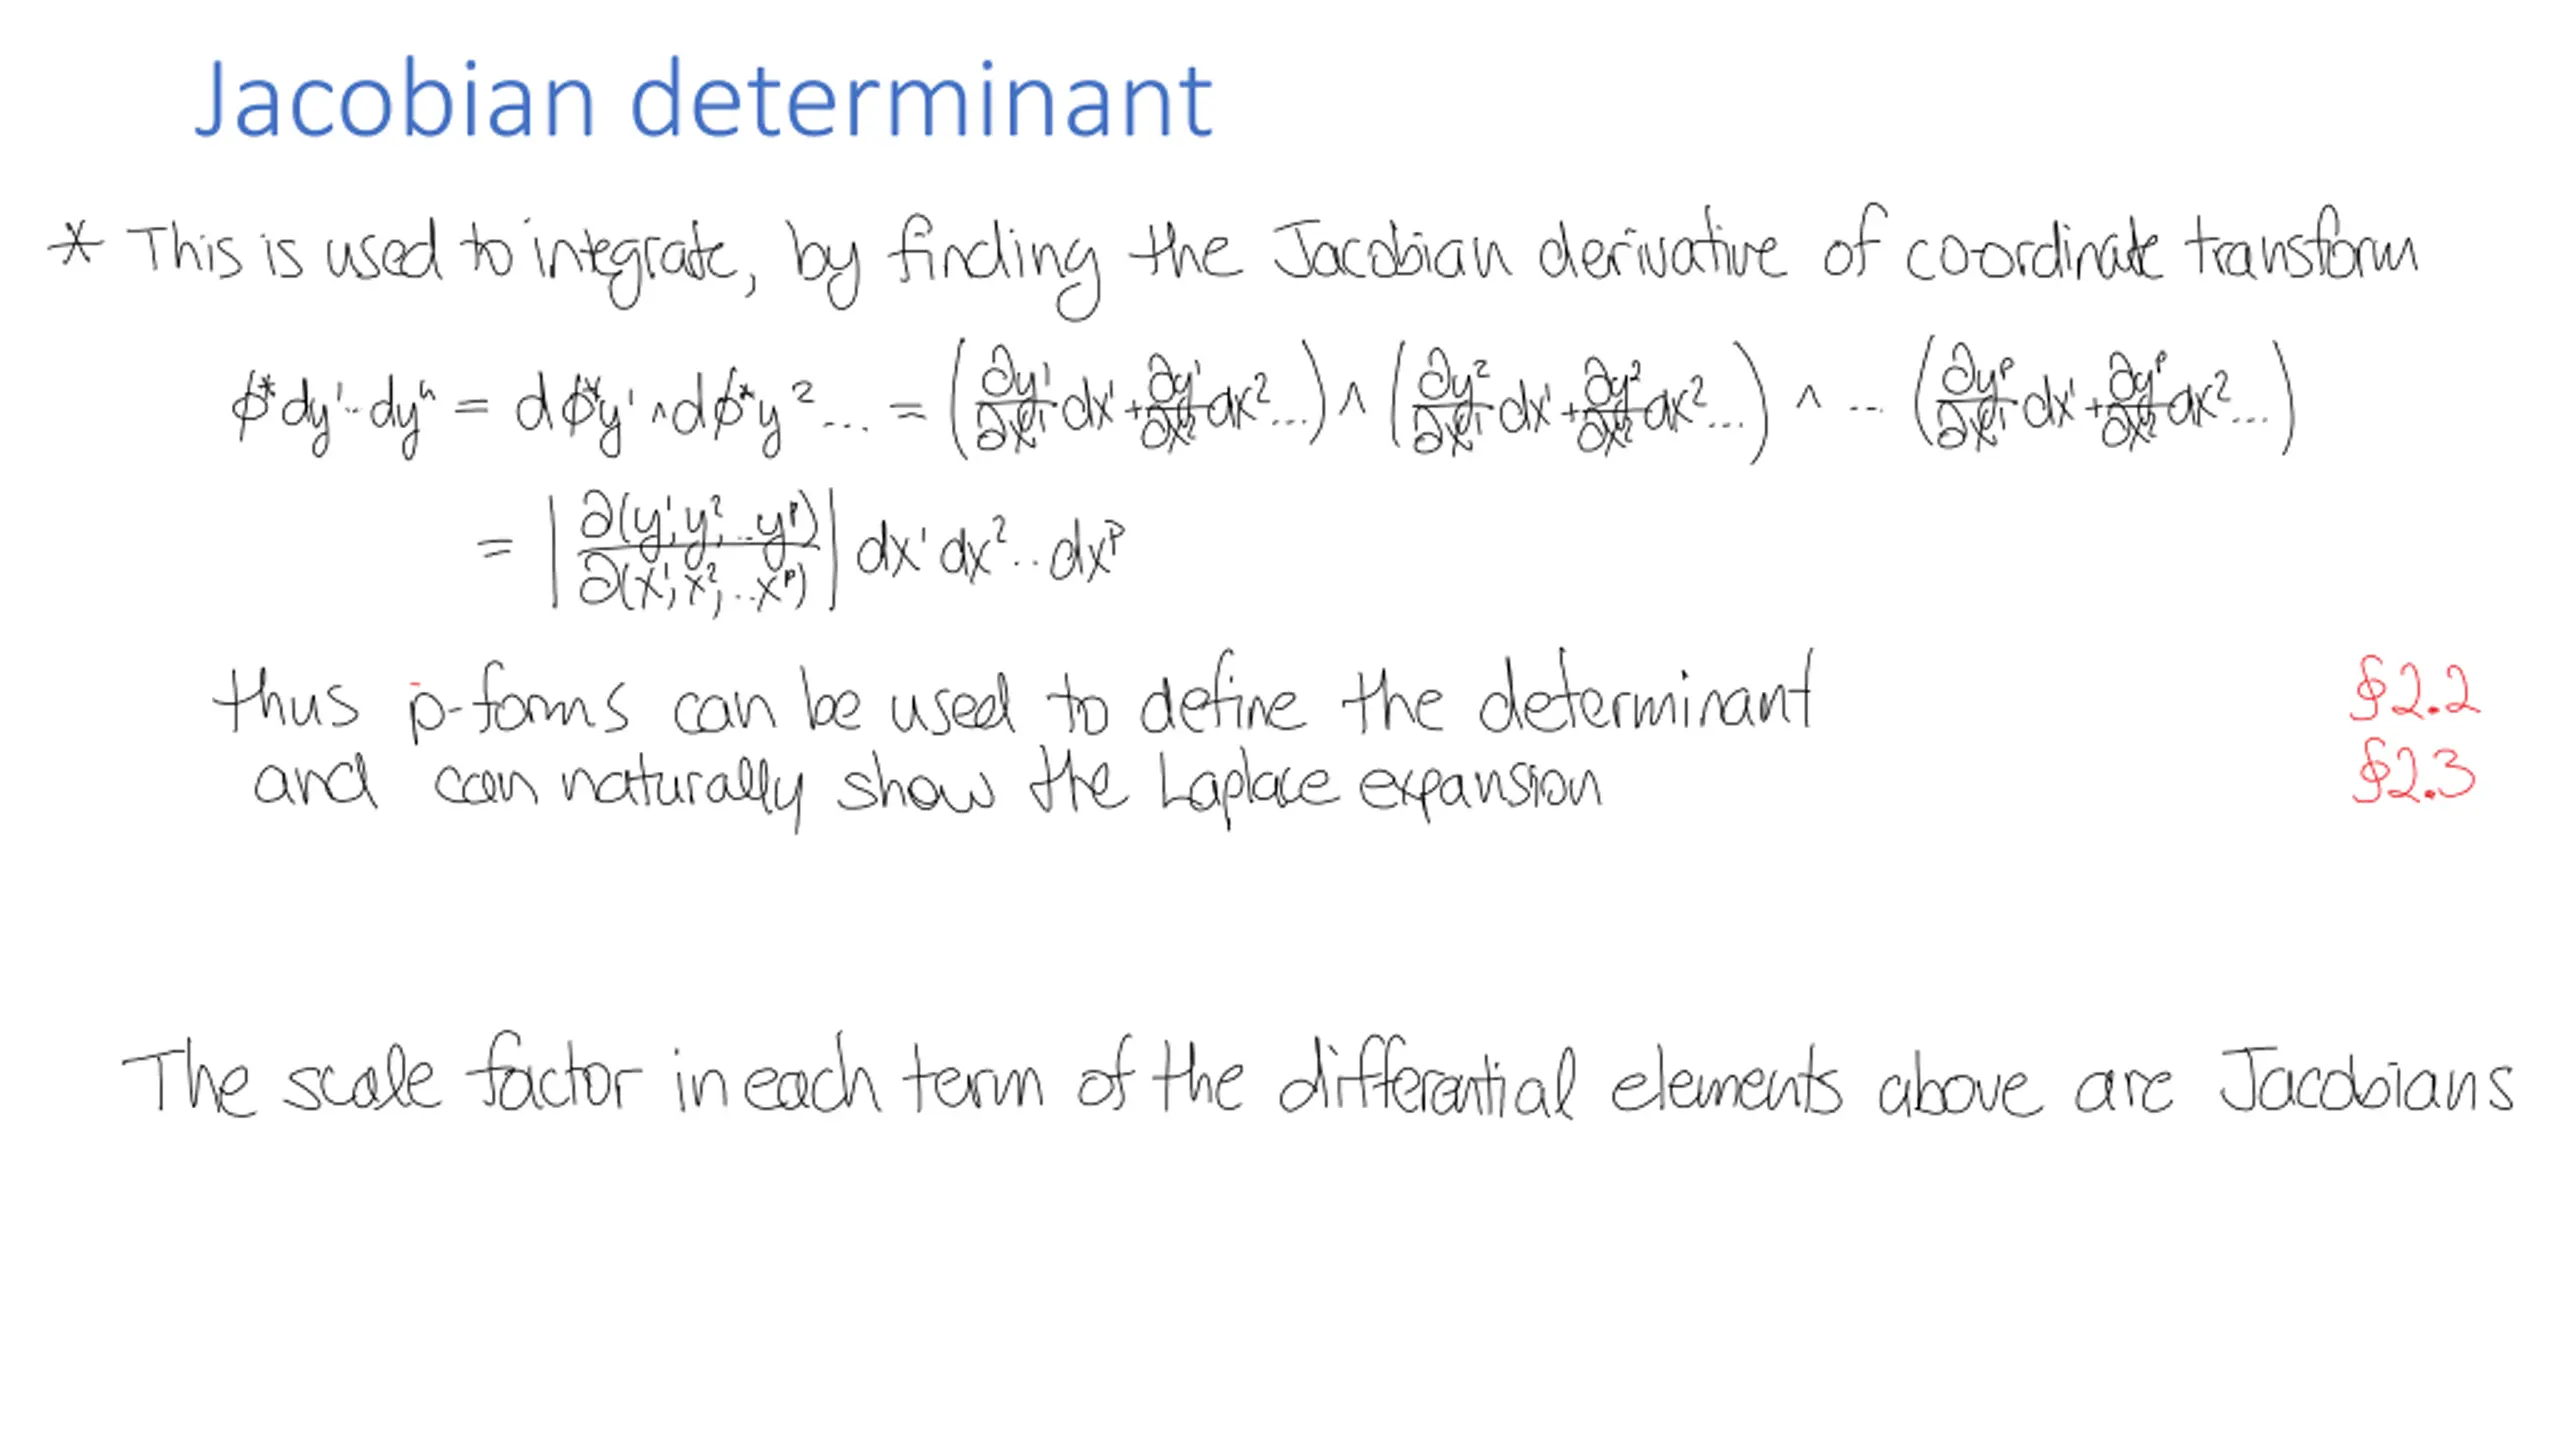 Jacobian determinant
* This is used to integrate, by finding the Jacobian derivative of coordinate transform
ϕ*dy¹··dyⁿ = dϕ*y¹ ∧ dϕ*y² ... = (∂y¹/∂x¹ dx¹ + ∂y¹/∂x² dx² ...) ∧ (∂y²/∂x¹ dx¹ + ∂y²/∂x² dx² ...) ∧ ... (∂yᵖ/∂x¹ dx¹ + ∂yᵖ/∂x² dx² ...)
= |∂(y¹, y², ..yᵖ)/∂(x¹, x², ..xᵖ)| dx¹ dx² .. dxᵖ
thus p-forms can be used to define the determinant §2.2
and can naturally show the Laplace expansion §2.3
The scale factor in each term of the differential elements above are Jacobians